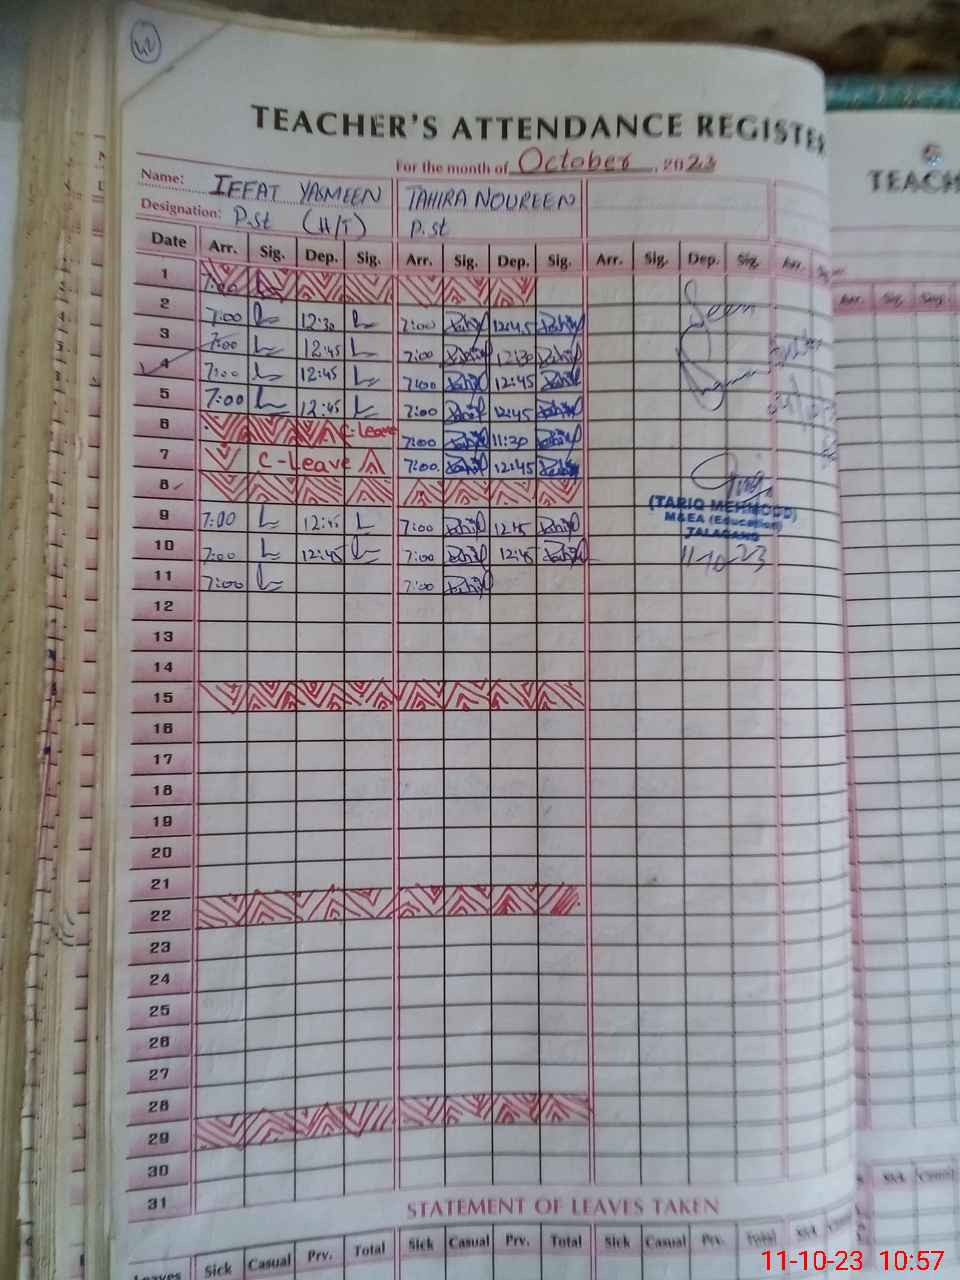 42
TEACHER'S ATTENDANCE REGISTER
For the month of October, 2023
TEACH
Name: IFFAT YASMEEN TAHIRA NOUREEN
Designation: P.St (H/T) P.st
Date Arr. Sig. Dep. Sig. Arr. Sig. Dep. Sig. Arr. Sig. Dep. Sig. Arr.
Arr. Sig.
1 7:00
2 7:00 12:30 7:00 12:45
3 7:00 12:45 7:00 12:30
4 7:00 12:45 7:00 12:45
5 7:00 12:45 7:00 12:45
6 C-Leave 7:00 11:30
7 C-Leave 7:00 12:45
8
9 7:00 12:45 7:00 12:45
10 7:00 12:45 7:00 12:45
11 7:00 7:00
(TARIQ MEHMOOD)
M&EA (Education)
TALAGANG
11-10-23
12
13
14
15
16
17
18
19
20
21
22
23
24
25
26
27
28
29
30
31
STATEMENT OF LEAVES TAKEN
Leaves Sick Casual Prv. Total Sick Casual Prv. Total Sick Casual Prv. Total Sick Casual
Sick Casual
11-10-23 10:57